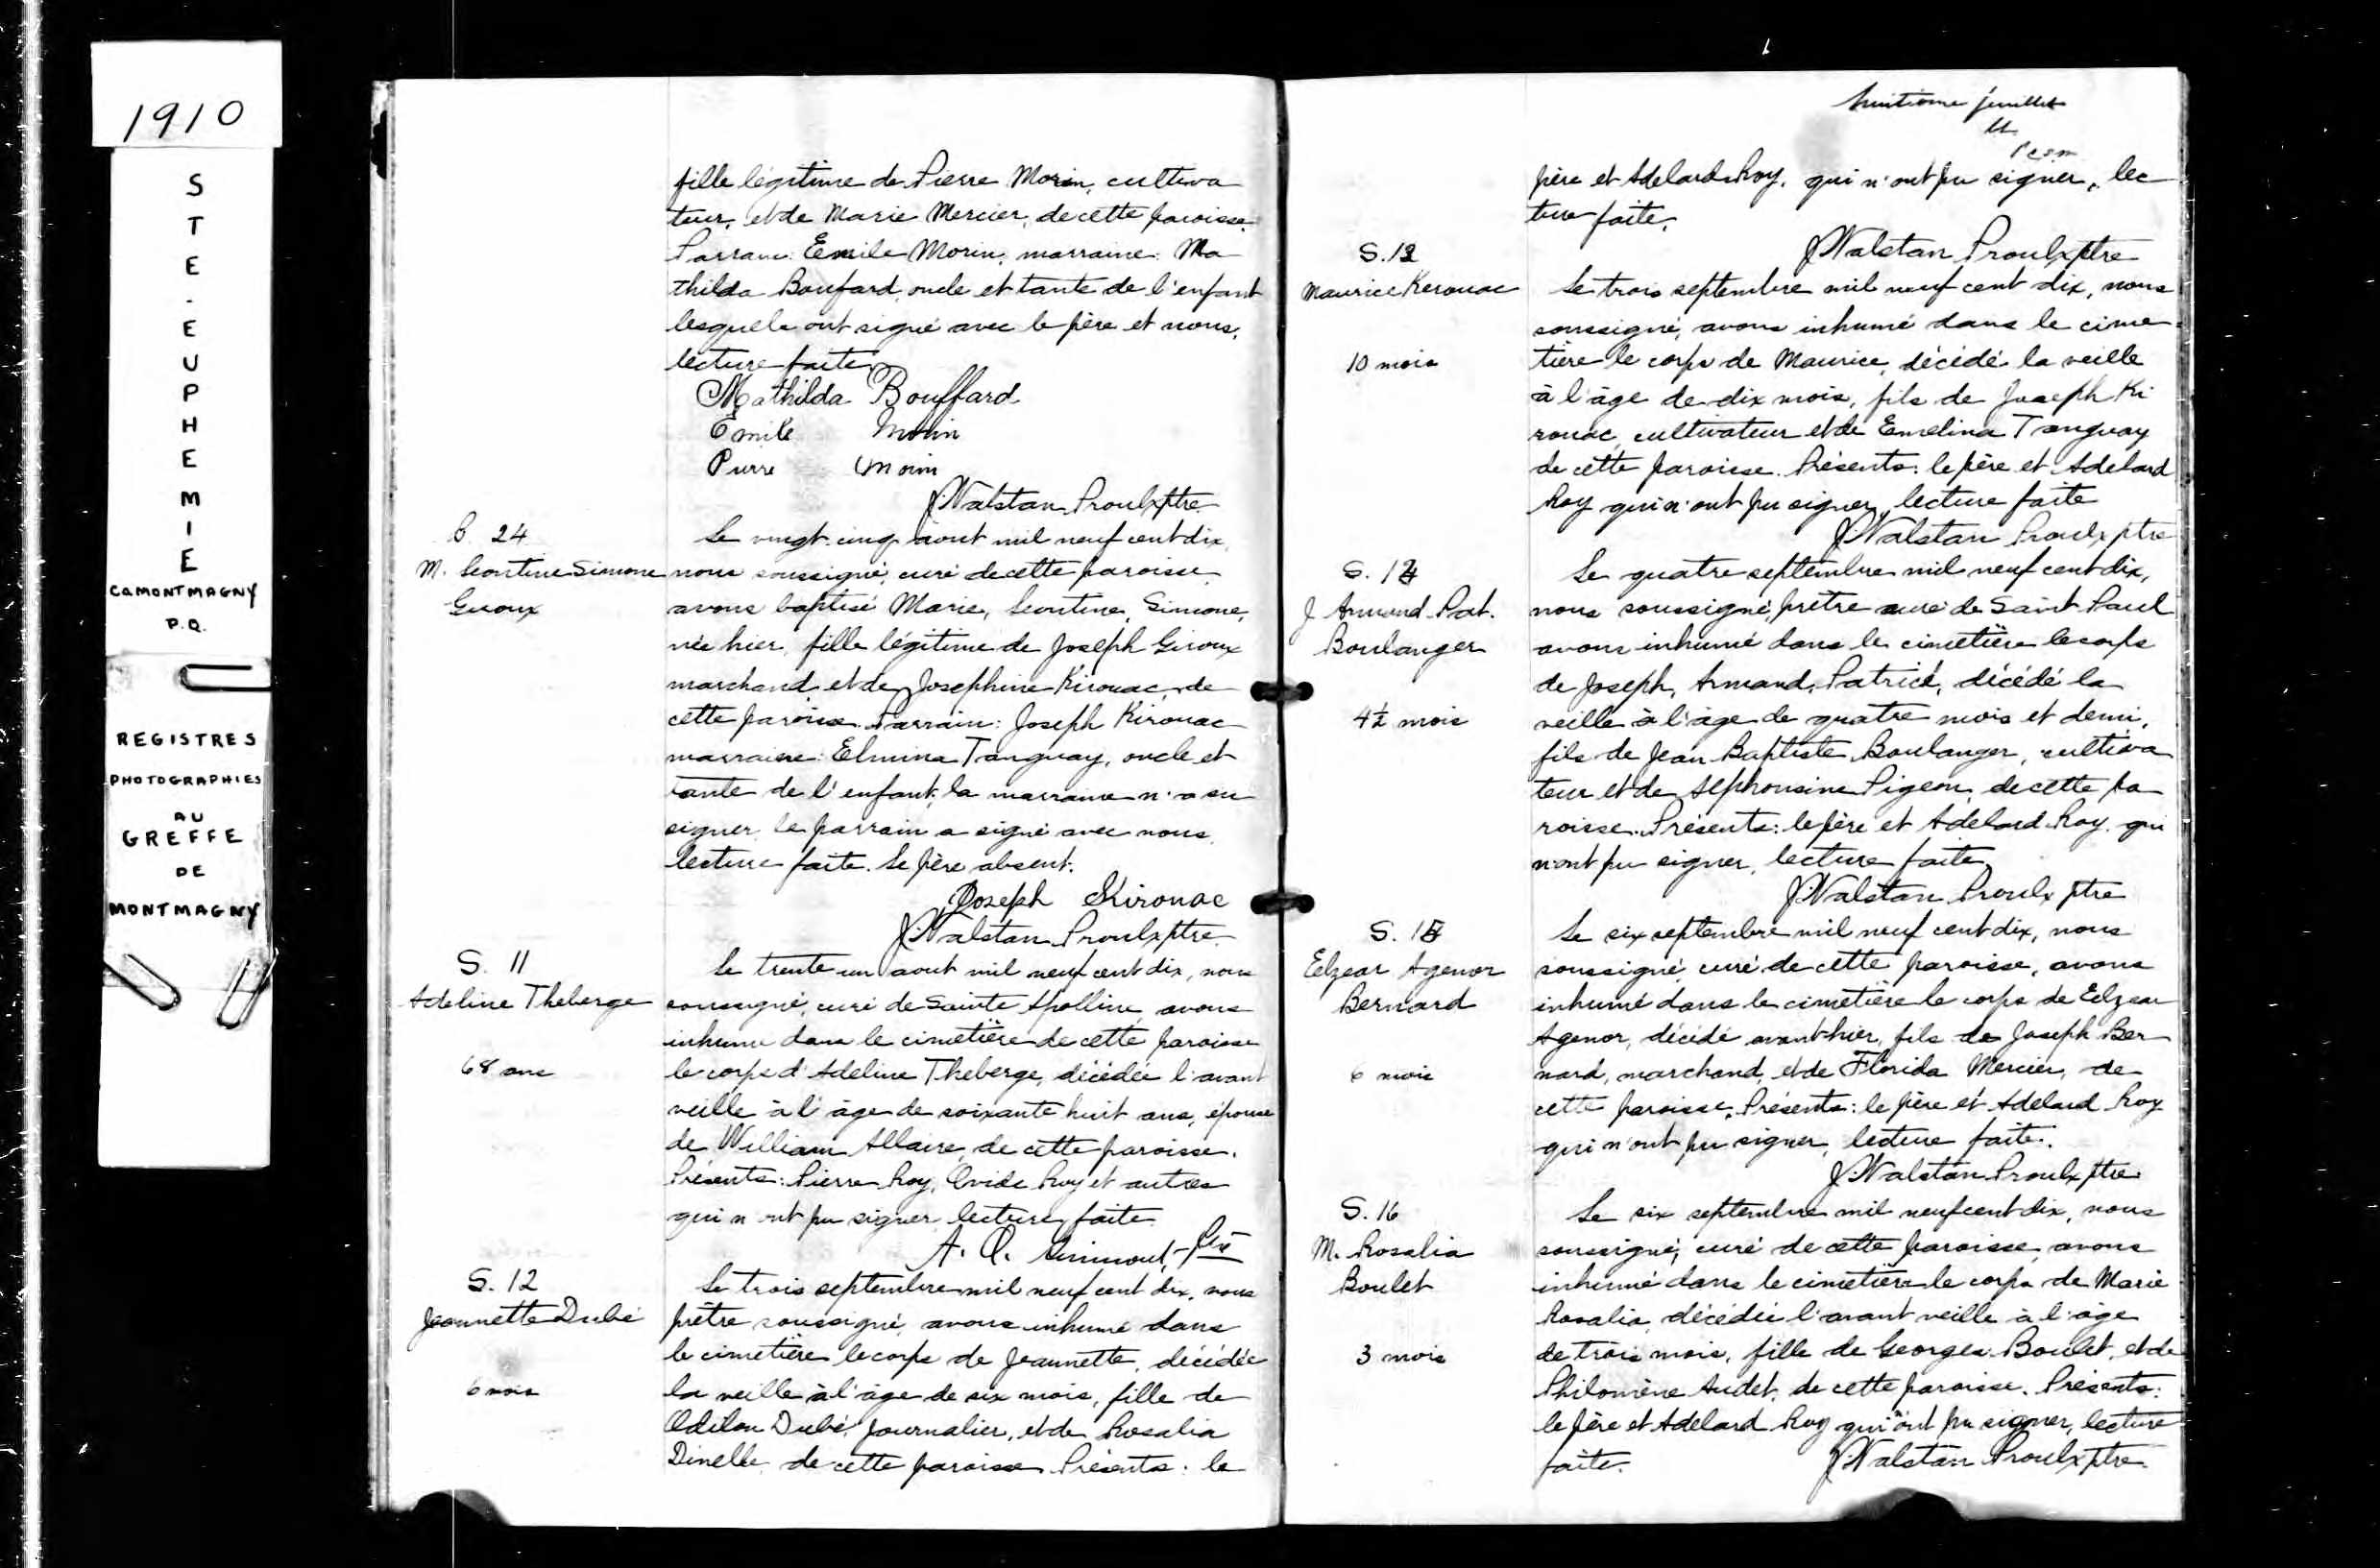 1910
STE-EUPHEMIE
CO MONTMAGNY
P.Q.
REGISTRES
PHOTOGRAPHIES
AU
GREFFE
DE
MONTMAGNY
fille légitime de Pierre Morin, cultiva
teur, et de Marie Mercier, de cette paroisse.
Parrain: Emile Morin, marraine: Ma
thilda Boufard, oncle et tante de l'enfant
lesquels ont signé avec le père et nous,
lecture faite.
Mathilda Bouffard
Emile Morin
Pierre Morin
J. Walstan Proulx ptre
B. 24
M. Leontine Simone
Giroux
Le vingt-cinq aout mil neuf cent dix,
nous soussigné, curé de cette paroisse
avons baptisé Marie, Leontine, Simone,
née hier, fille légitime de Joseph Giroux
marchand et de Josephine Kirouac, de
cette paroisse. Parrain: Joseph Kirouac
marraine: Elmina Tanguay, oncle et
tante de l'enfant; la marraine n'a su
signer, le parrain a signé avec nous,
lecture faite. Le père absent.
Joseph Kirouac
J. Walstan Proulx ptre
S. 11
Adeline Theberge
68 ans
Le trente un aout mil neuf cent dix, nous
soussigné, curé de Sainte Apolline, avons
inhumé dans le cimetière de cette paroisse
le corps d'Adeline Theberge, décédée l'avant
veille à l'âge de soixante huit ans, épouse
de William Allaire, de cette paroisse.
Présents: Pierre Roy, Ovide Roy et autres
qui n'ont pu signer, lecture faite.
A. O. ptre
S. 12
Jeannette Dubé
6 mois
Le trois septembre mil neuf cent dix, nous
prêtre soussigné, avons inhumé dans
le cimetière le corps de Jeannette, décédée
la veille à l'âge de six mois, fille de
Odilon Dubé, journalier, et de Rosalia
Dinelle, de cette paroisse. Présents: le
huitième feuillet
père et Adelard Roy, qui n'ont pu signer, lec
ture faite.
J. Walstan Proulx ptre
S. 13
Maurice Kerouac
10 mois
Le trois septembre mil neuf cent dix, nous
soussigné, avons inhumé dans le cime
tière le corps de Maurice, décédé la veille
à l'âge de dix mois, fils de Joseph Ki
rouac, cultivateur et de Emelina Tanguay
de cette paroisse. Présents: le père et Adelard
Roy qui n'ont pu signer, lecture faite
J. Walstan Proulx ptre
S. 14
J. Armand Pat.
Boulanger
4½ mois
Le quatre septembre mil neuf cent dix,
nous soussigné, prêtre curé de Saint Paul
avons inhumé dans le cimetière le corps
de Joseph, Armand, Patrice, décédé la
veille à l'âge de quatre mois et demi,
fils de Jean Baptiste Boulanger, cultiva
teur et de Alphonsine Pigeon, de cette pa
roisse. Présents: le père et Adelard Roy, qui
n'ont pu signer, lecture faite,
J. Walstan Proulx ptre
S. 15
Elzear Agenor
Bernard
6 mois
Le six septembre mil neuf cent dix, nous
soussigné, curé de cette paroisse, avons
inhumé dans le cimetière le corps de Elzear
Agenor, décédé avant-hier, fils de Joseph Ber
nard, marchand, et de Florida Mercier, de
cette paroisse. Présents: le père et Adelard Roy
qui n'ont pu signer, lecture faite.
J. Walstan Proulx ptre
S. 16
M. Rosalia
Boulet
3 mois
Le six septembre mil neuf cent dix, nous
soussigné, curé de cette paroisse, avons
inhumé dans le cimetière le corps de Marie
Rosalia, décédée l'avant veille à l'âge
de trois mois, fille de Georges Boulet, et de
Philomène Audet, de cette paroisse. Présents:
le père et Adelard Roy qui n'ont pu signer, lecture
faite.
J. Walstan Proulx ptre